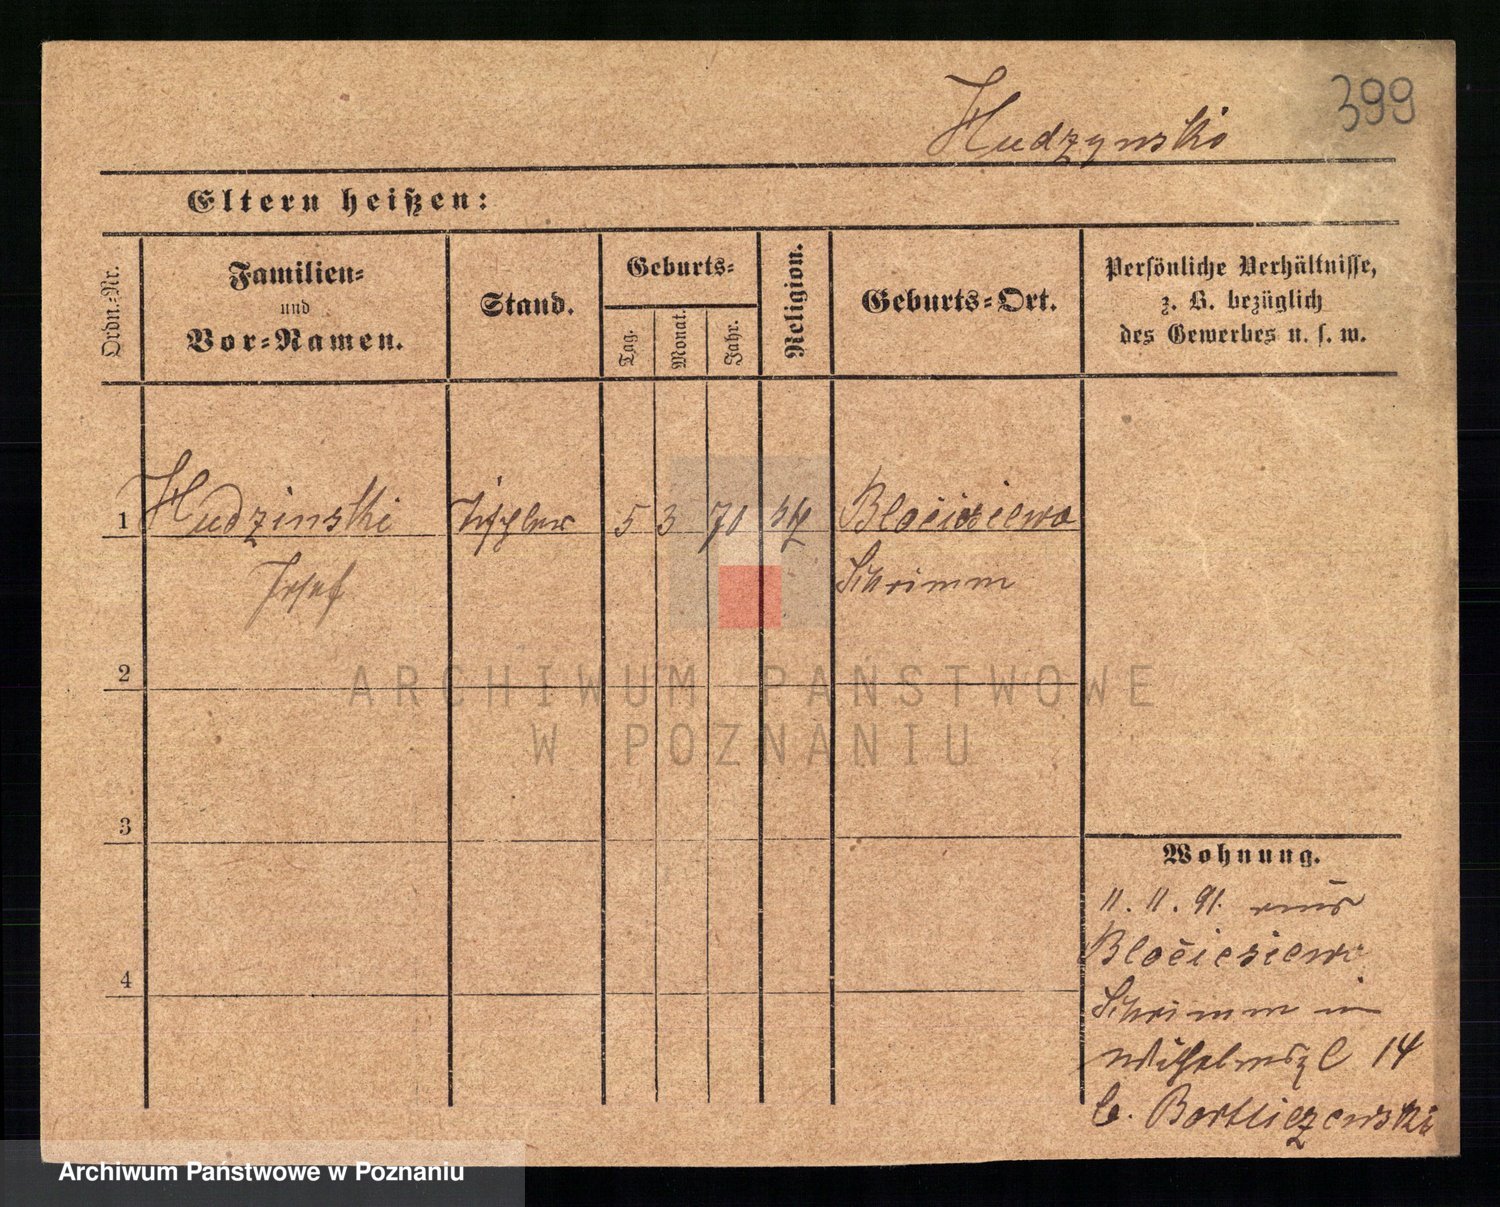 399
Hudzynski
Eltern heißen:
Ordn.-Nr.
Familien-
und
Vor-Namen.
Stand.
Geburts-
Tag.
Monat.
Jahr.
Religion.
Geburts-Ort.
Persönliche Verhältnisse,
z. B. bezüglich
des Gewerbes u. s. w.
1 Hudzinski Tischler 5 3 70 Blociszewo
Josef Schrimm
2
3
4
Wohnung.
11. 11. 91. aus
Blociszewo
Schrimm in
Wilhelmspl 14
b.
ARCHIWUM PAŃSTWOWE
W POZNANIU
Archiwum Państwowe w Poznaniu